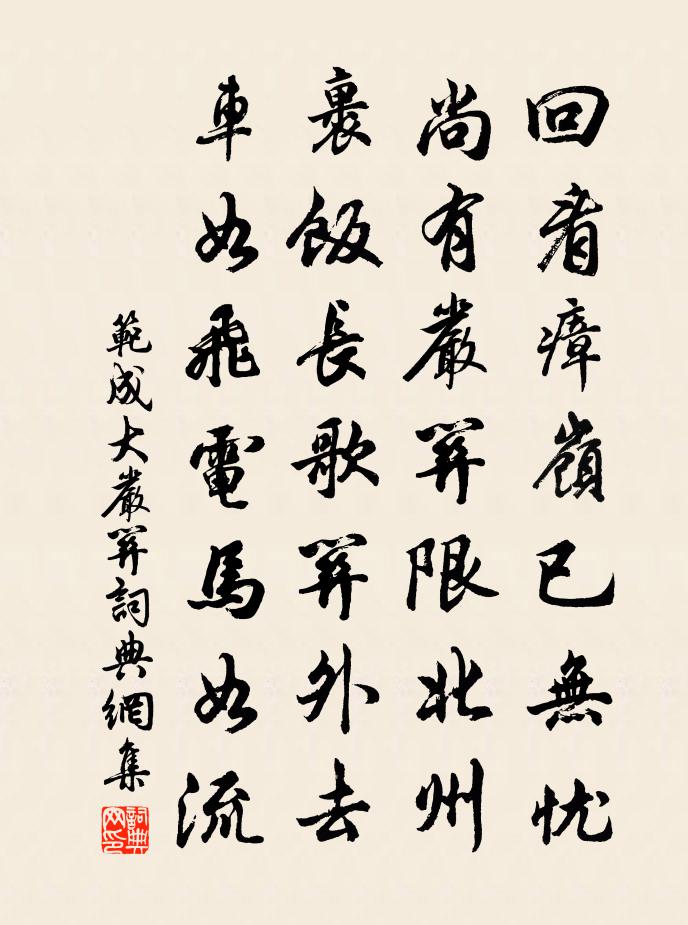 回看瘴嶺已無憂
尚有嚴關限北州
裹飯長歌關外去
車如飛電馬如流
範成大嚴關詞典網集
詞典
网印